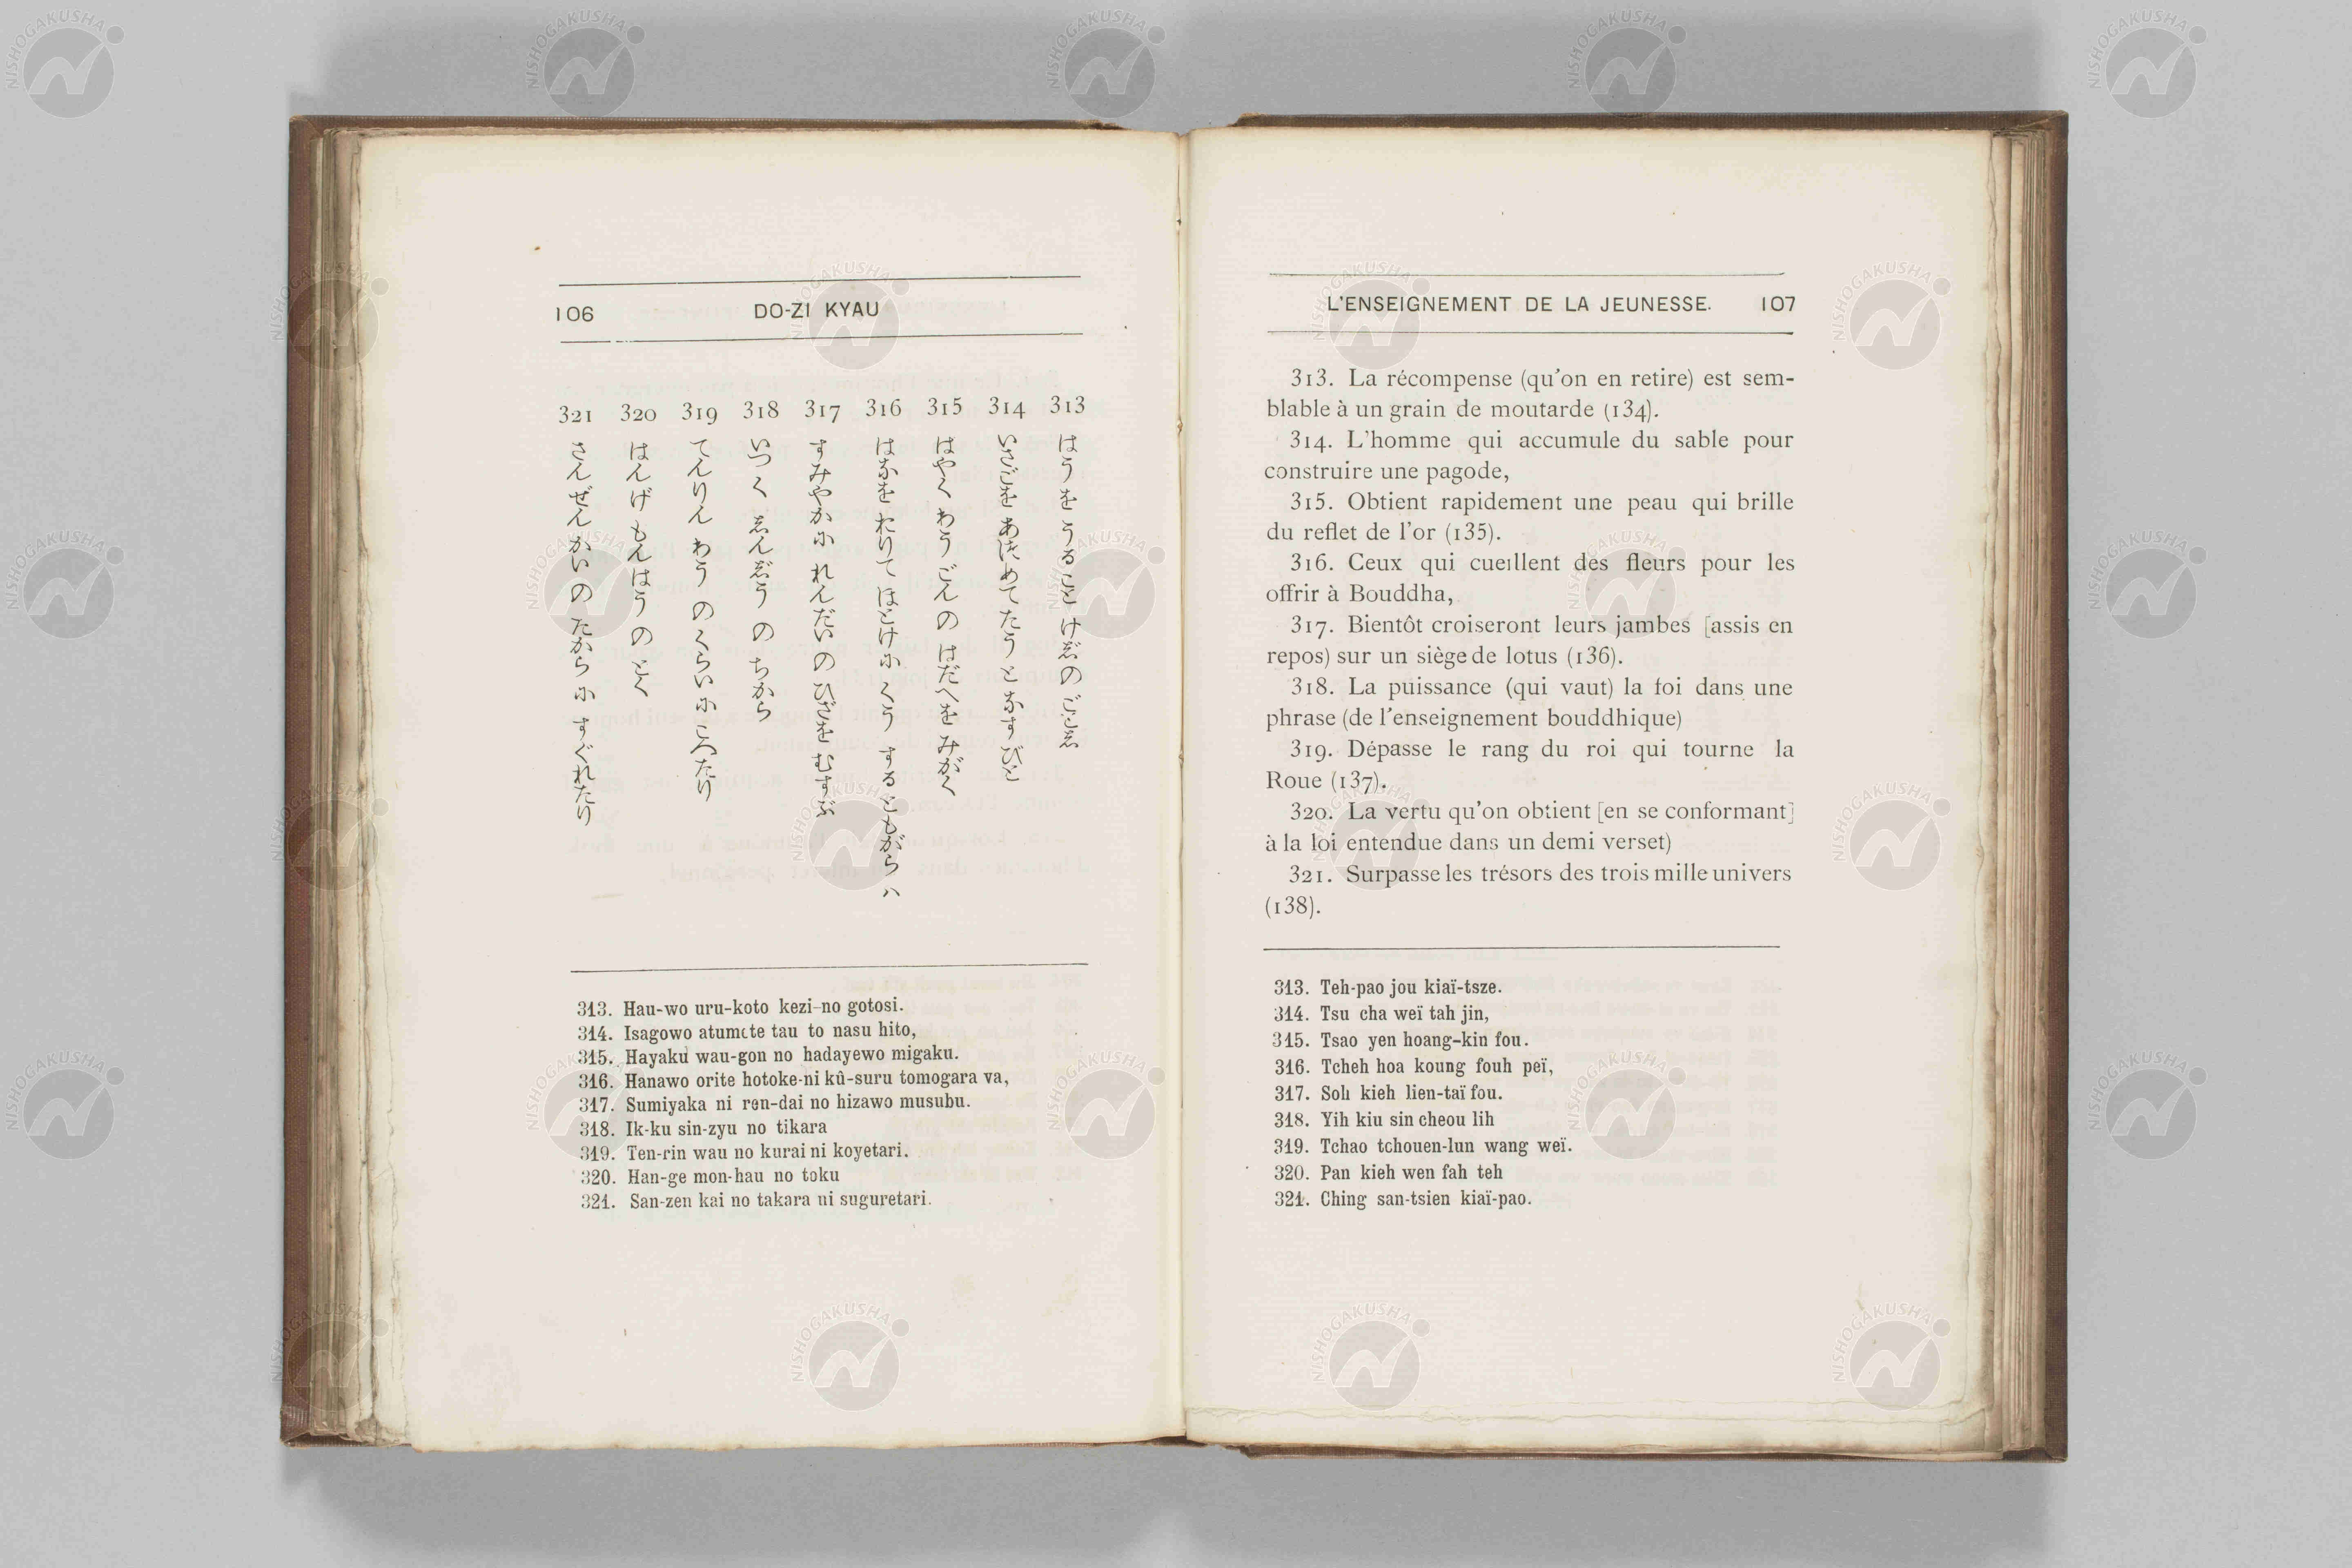 106 DO-ZI KYAU
313 はうをうることけゞのごとゑ
314 いさごをあつめてたうとなすひと
315 はやくわうごんのはだへをみがく
316 はなをおりてほとけにくうするともがらハ
317 すみやかにれんだいのひざをむすぶ
318 いつくゑんぢうのちから
319 てんりんわうのくらいにこへたり
320 はんげもんはうのとく
321 さんぜんかいのたからにすぐれたり
313. Hau-wo uru-koto kezi-no gotosi.
314. Isagowo atumete tau to nasu hito,
315. Hayaku wau-gon no hadayewo migaku.
316. Hanawo orite hotoke-ni kû-suru tomogara va,
317. Sumiyaka ni ren-dai no hizawo musubu.
318. Ik-ku sin-zyu no tikara
319. Ten-rin wau no kurai ni koyetari.
320. Han-ge mon-hau no toku
321. San-zen kai no takara ni suguretari.
L'ENSEIGNEMENT DE LA JEUNESSE. 107
313. La récompense (qu'on en retire) est sem-
blable à un grain de moutarde (134).
314. L'homme qui accumule du sable pour
construire une pagode,
315. Obtient rapidement une peau qui brille
du reflet de l'or (135).
316. Ceux qui cueillent des fleurs pour les
offrir à Bouddha,
317. Bientôt croiseront leurs jambes [assis en
repos) sur un siège de lotus (136).
318. La puissance (qui vaut) la foi dans une
phrase (de l'enseignement bouddhique)
319. Dépasse le rang du roi qui tourne la
Roue (137).
320. La vertu qu'on obtient [en se conformant]
à la loi entendue dans un demi verset)
321. Surpasse les trésors des trois mille univers
(138).
313. Teh-pao jou kiaï-tsze.
314. Tsu cha weï tah jin,
315. Tsao yen hoang-kin fou.
316. Tcheh hoa koung fouh peï,
317. Soh kieh lien-taï fou.
318. Yih kiu sin cheou lih
319. Tchao tchouen-lun wang weï.
320. Pan kieh wen fah teh
321. Ching san-tsien kiaï-pao.
NISHOGAKUSHA